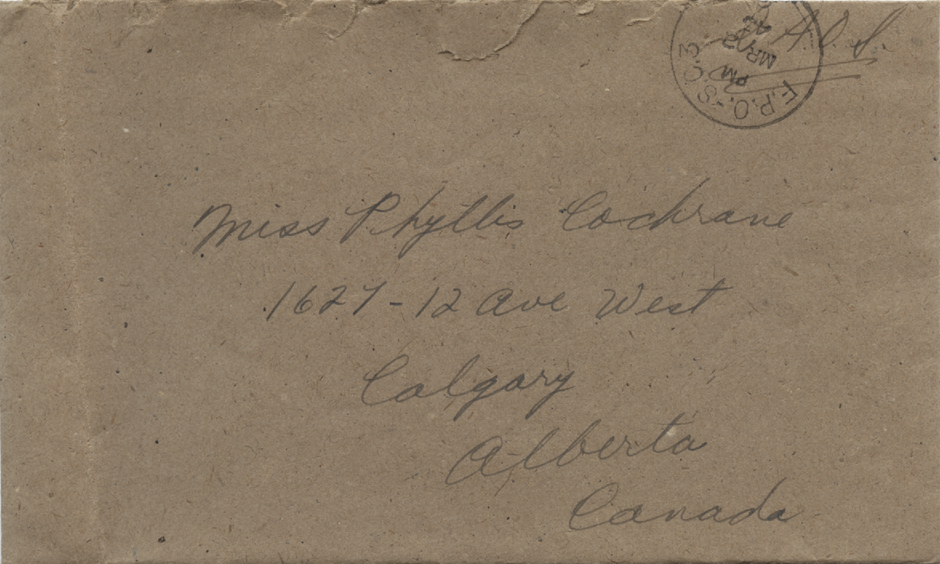 O.A.S.
F.P.O.-S.C.2
PM
MR 12
Miss Phyllis Cochrane
1627-12 Ave West
Calgary
Alberta
Canada